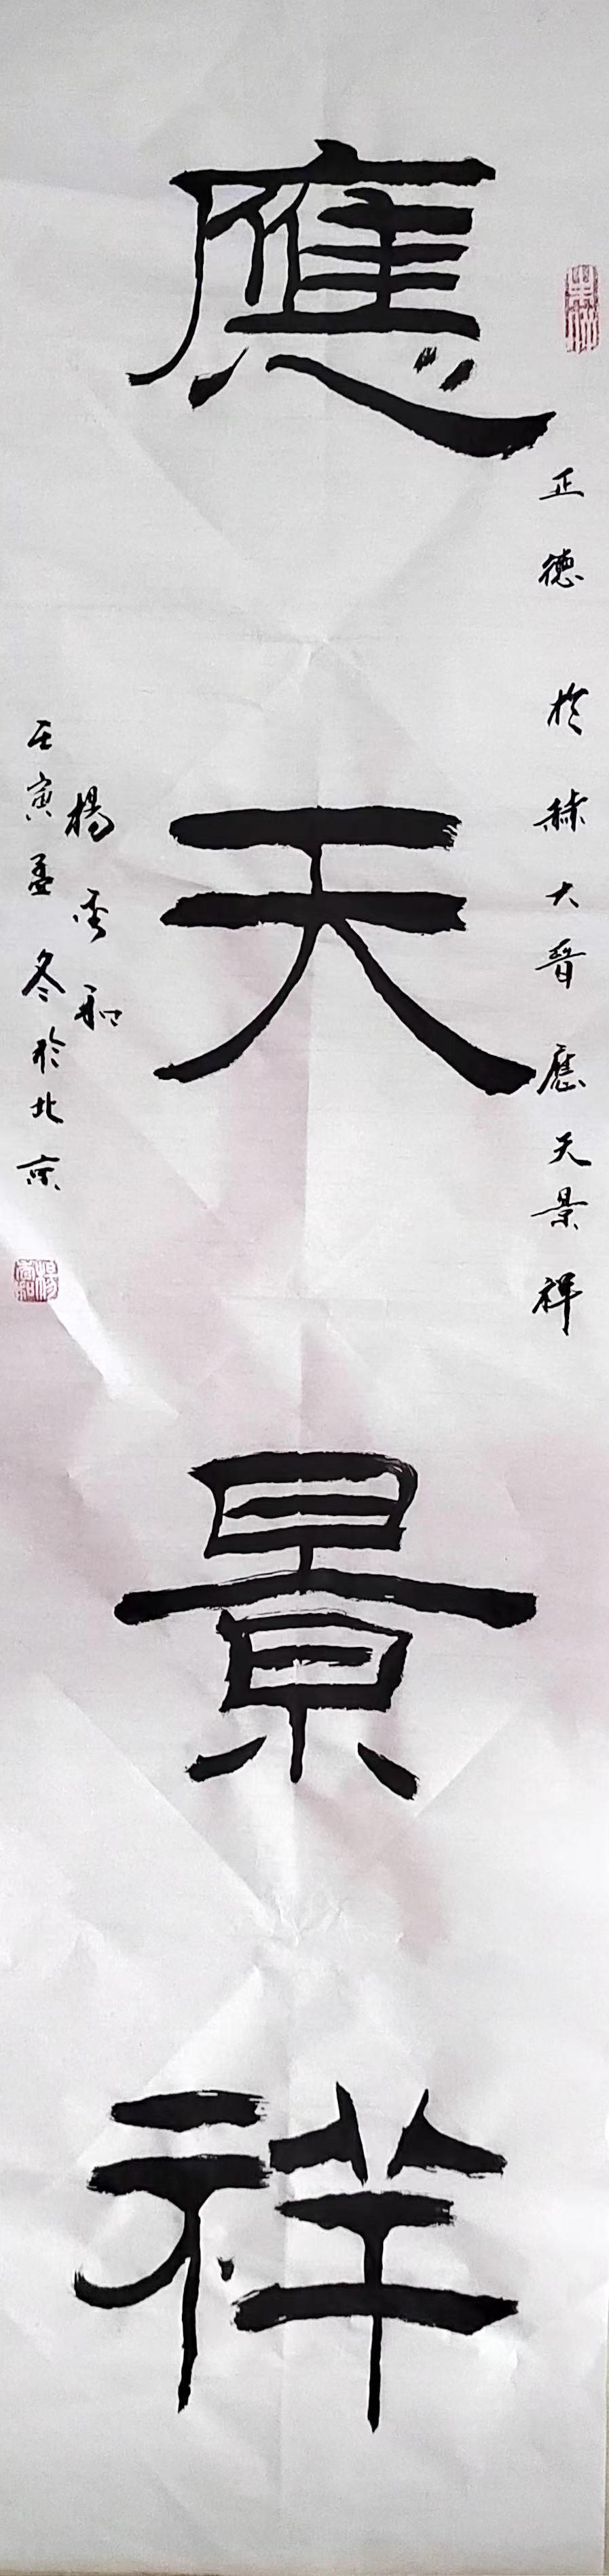 應天景祥
正德 於赫大晉應天景祥
楊 和
壬寅孟冬於北京